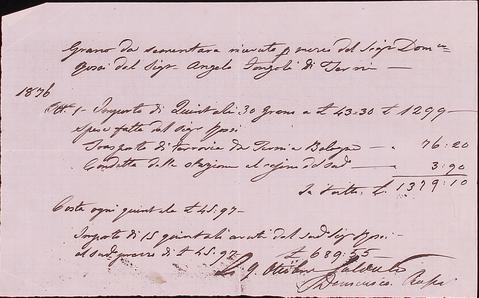 Grano da sementara ricevuto p mezzo del Sigr Dome-
del Sigr. Angelo di Terni —
1876
1 - Importo di Quintali 30 Grano a £ 43.30 £ 1299 —
Spese fatte dal Sigr
Trasporto di ferrovia da Terni a Bologna — " 76:20
Condotta dalla stazione al — " 3:90
In tutto £. 1379:10
Costa ogni quintale £ 45.97 —
Importo di 15 quintali avuti dal Sigr
al prezzo di £ 45.97 £ 689.55 —
Li 9. Ottobre
Domenico